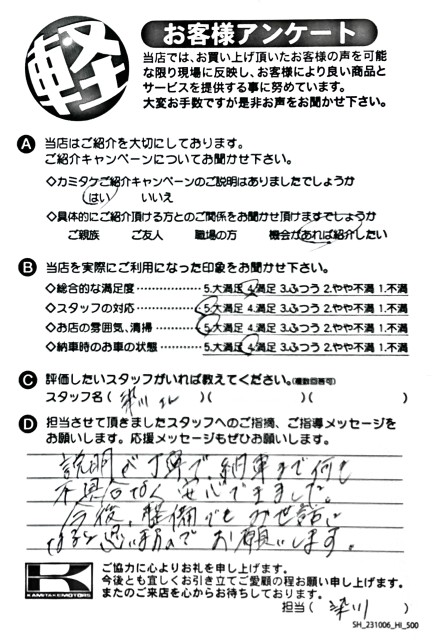 軽
お客様アンケート
当店では、お買い上げ頂いたお客様の声を可能
な限り現場に反映し、お客様により良い商品と
サービスを提供する事に努めています。
大変お手数ですが是非お声をお聞かせ下さい。
A 当店はご紹介を大切にしております。
ご紹介キャンペーンについてお聞かせ下さい。
◇カミタケご紹介キャンペーンのご説明はありましたでしょうか
はい いいえ
◇具体的にご紹介頂ける方とのご関係をお聞かせ頂けますでしょうか
ご親族 ご友人 職場の方 機会があれば紹介したい
B 当店を実際にご利用になった印象をお聞かせ下さい。
◇総合的な満足度 ・・・・・・・・・・ 5.大満足 4.満足 3.ふつう 2.やや不満 1.不満
◇スタッフの対応 ・・・・・・・・・・ 5.大満足 4.満足 3.ふつう 2.やや不満 1.不満
◇お店の雰囲気、清掃 ・・・・・・ 5.大満足 4.満足 3.ふつう 2.やや不満 1.不満
◇納車時のお車の状態 ・・・・・ 5.大満足 4.満足 3.ふつう 2.やや不満 1.不満
C 評価したいスタッフがいれば教えてください。(複数回答可)
スタッフ名( 染川 )( )( )
D 担当させて頂きましたスタッフへのご指摘、ご指導メッセージを
お願いします。応援メッセージもぜひお願いします。
説明が丁寧で、納車まで何も
不具合なく安心できました。
今後、整備でもお世話に
なると思いますので お願いします。
K
KAMITAKEMOTORS
ご協力に心よりお礼を申し上げます。
今後とも宜しくお引き立てご愛顧の程お願い申し上げます。
またのご来店を心からお待ちしております。
担当( 染川 )
SH_231006_HI_500